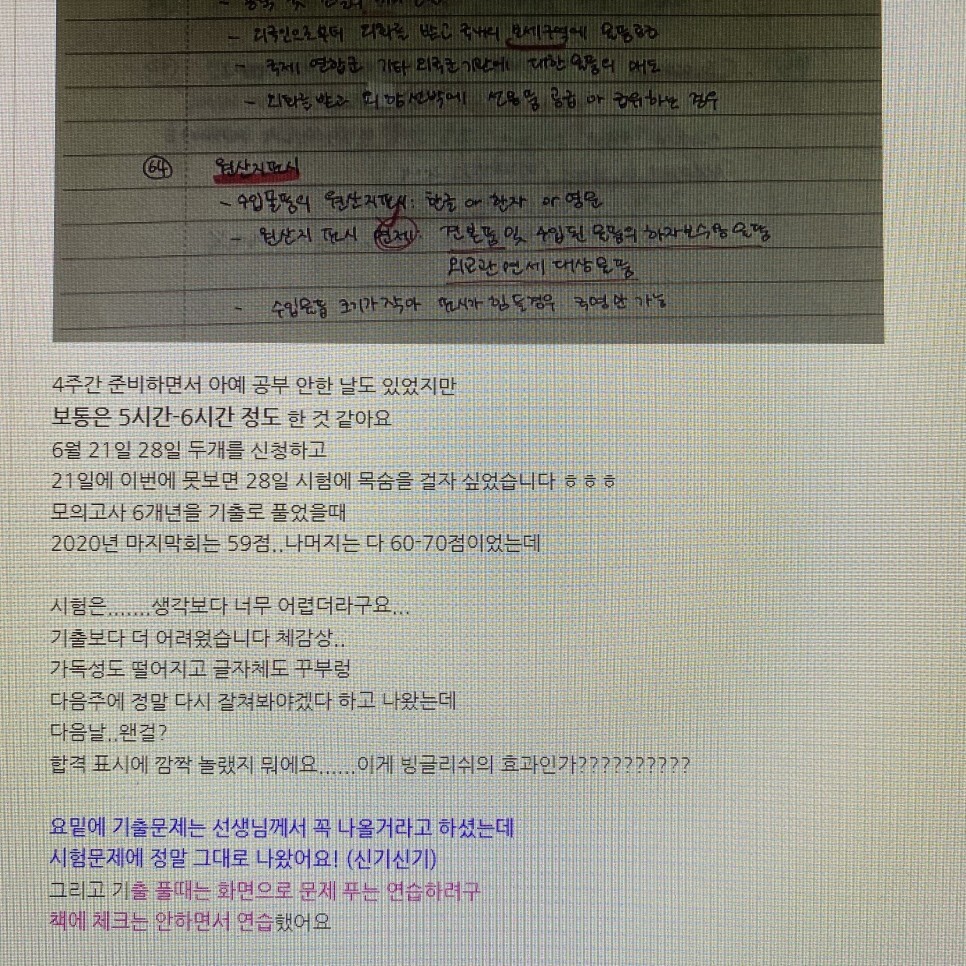 - 외국인으로부터 외화를 받고 국내의 보세구역에 물품공급
- 국제 연합군 기타 외국군기관에 대한 물품의 매도
- 외화를 받고 외항선박에 선용품 공급 or 급유하는 경우
64 원산지표시
- 수입물품의 원산지표시: 한글 or 한자 or 영문
- 원산지 표시 면제: 견본품 및 수입된 물품의 하자보수용 물품
외교관 면세 대상물품
- 수입물품 크기가 작아 표시가 힘들경우 국명만 가능
4주간 준비하면서 아예 공부 안한 날도 있었지만
보통은 5시간-6시간 정도 한 것 같아요
6월 21일 28일 두개를 신청하고
21일에 이번에 못보면 28일 시험에 목숨을 걸자 싶었습니다 ㅎㅎㅎ
모의고사 6개년을 기출로 풀었을때
2020년 마지막회는 59점..나머지는 다 60-70점이었는데
시험은.......생각보다 너무 어렵더라구요...
기출보다 더 어려웠습니다 체감상..
가독성도 떨어지고 글자체도 꾸부렁
다음주에 정말 다시 잘쳐봐야겠다 하고 나왔는데
다음날..왠걸?
합격 표시에 깜짝 놀랬지 뭐에요......이게 빙글리쉬의 효과인가??????????
요밑에 기출문제는 선생님께서 꼭 나올거라고 하셨는데
시험문제에 정말 그대로 나왔어요! (신기신기)
그리고 기출 풀때는 화면으로 문제 푸는 연습하려구
책에 체크는 안하면서 연습했어요